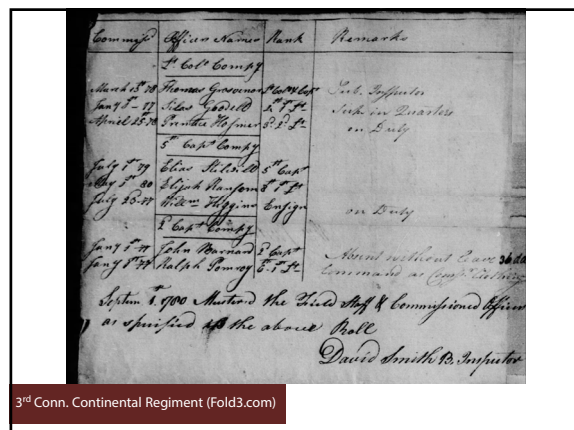 Commiss'd Officers Names Rank Remarks
Lt Colo Compy
March 13th 78 Thomas Grosvenor Lt Colo & Capt Sub. Inspector
Jany 1st 77 Silas Goodell Lt Sick in Quarters
April 25th Prentice Hosmer Lt on Duty
5th Capt Compy
July 1st 79 Elias Stilwell 5th Capt
May 1st 80 Elijah Ransom Lt
July 25 Willm Higgins Ensign on Duty
2d Capt Compy
Jany 1st 77 John Barnard 2d Capt Absent without leave
Jany 1st Ralph Pomroy Lt Command as Clothier
Septem 1. 1780 Muster'd the Field Staff & Commissioned Officers
as specified in the above Roll
David Smith B. Inspector
3rd Conn. Continental Regiment (Fold3.com)